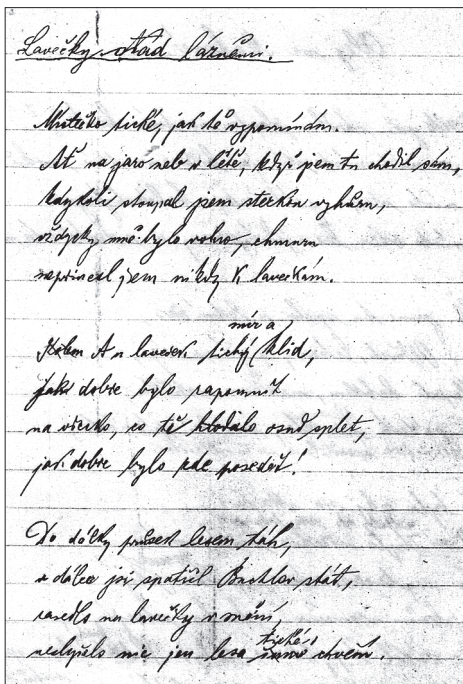 Lavečky nad lázněmi.
Místečko tiché, jak tě vzpomínám.
Ať na jaro nebo v létě, když jsem tu chodil sám,
kdykoli stoupal jsem stezkou vzhůru,
vždycky mně bylo volno, chmuru
nepřinesl jsem nikdy k lavečkám.
mír a
Kolem A u laveček tichý klid,
jak dobře bylo zapomnít
na všecko, co tě hlodalo osud splet,
jak dobře bylo zde posedět!
Do dálky průsek lesem táh,
v dálce jsi spatřil stát,
na lavečky v
neslyšels nic jen lesa tiché chvění.